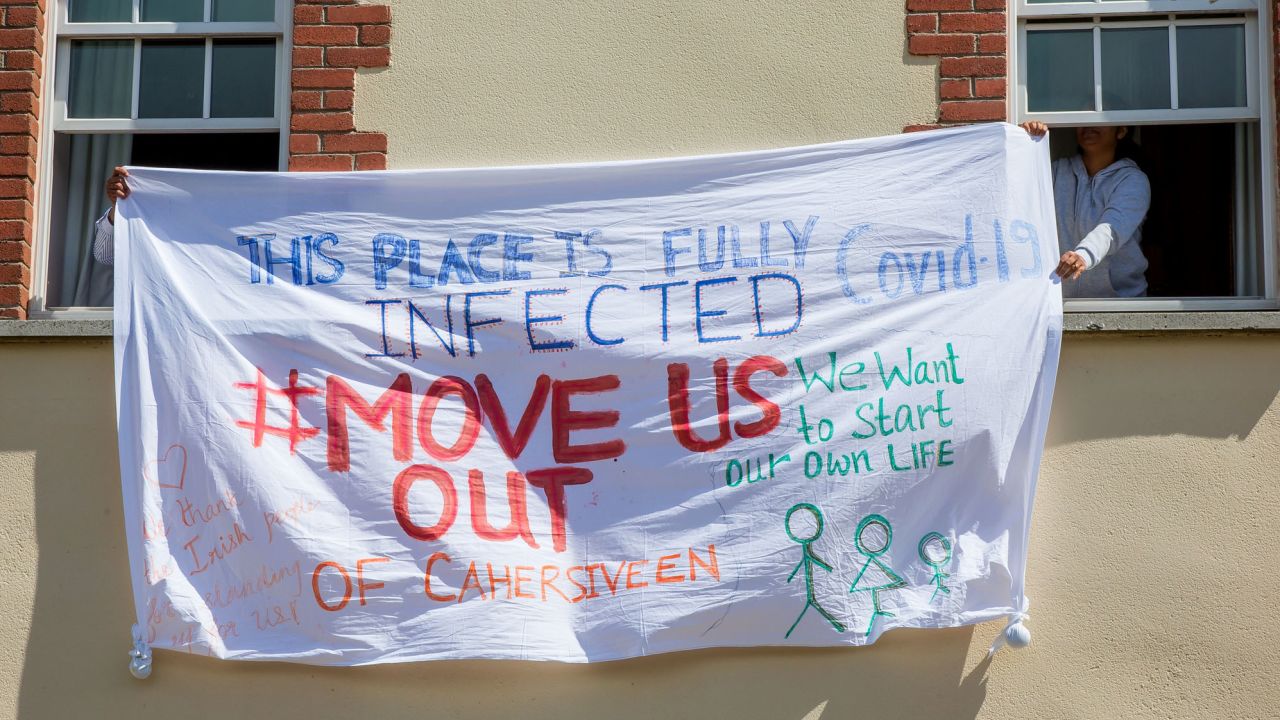 THIS PLACE IS FULLY Covid-19
INFECTED
#MOVE US
OUT
OF CAHERSIVEEN
We Want
to Start
our own LIFE
We thank
the Irish people
for standing
up for US!